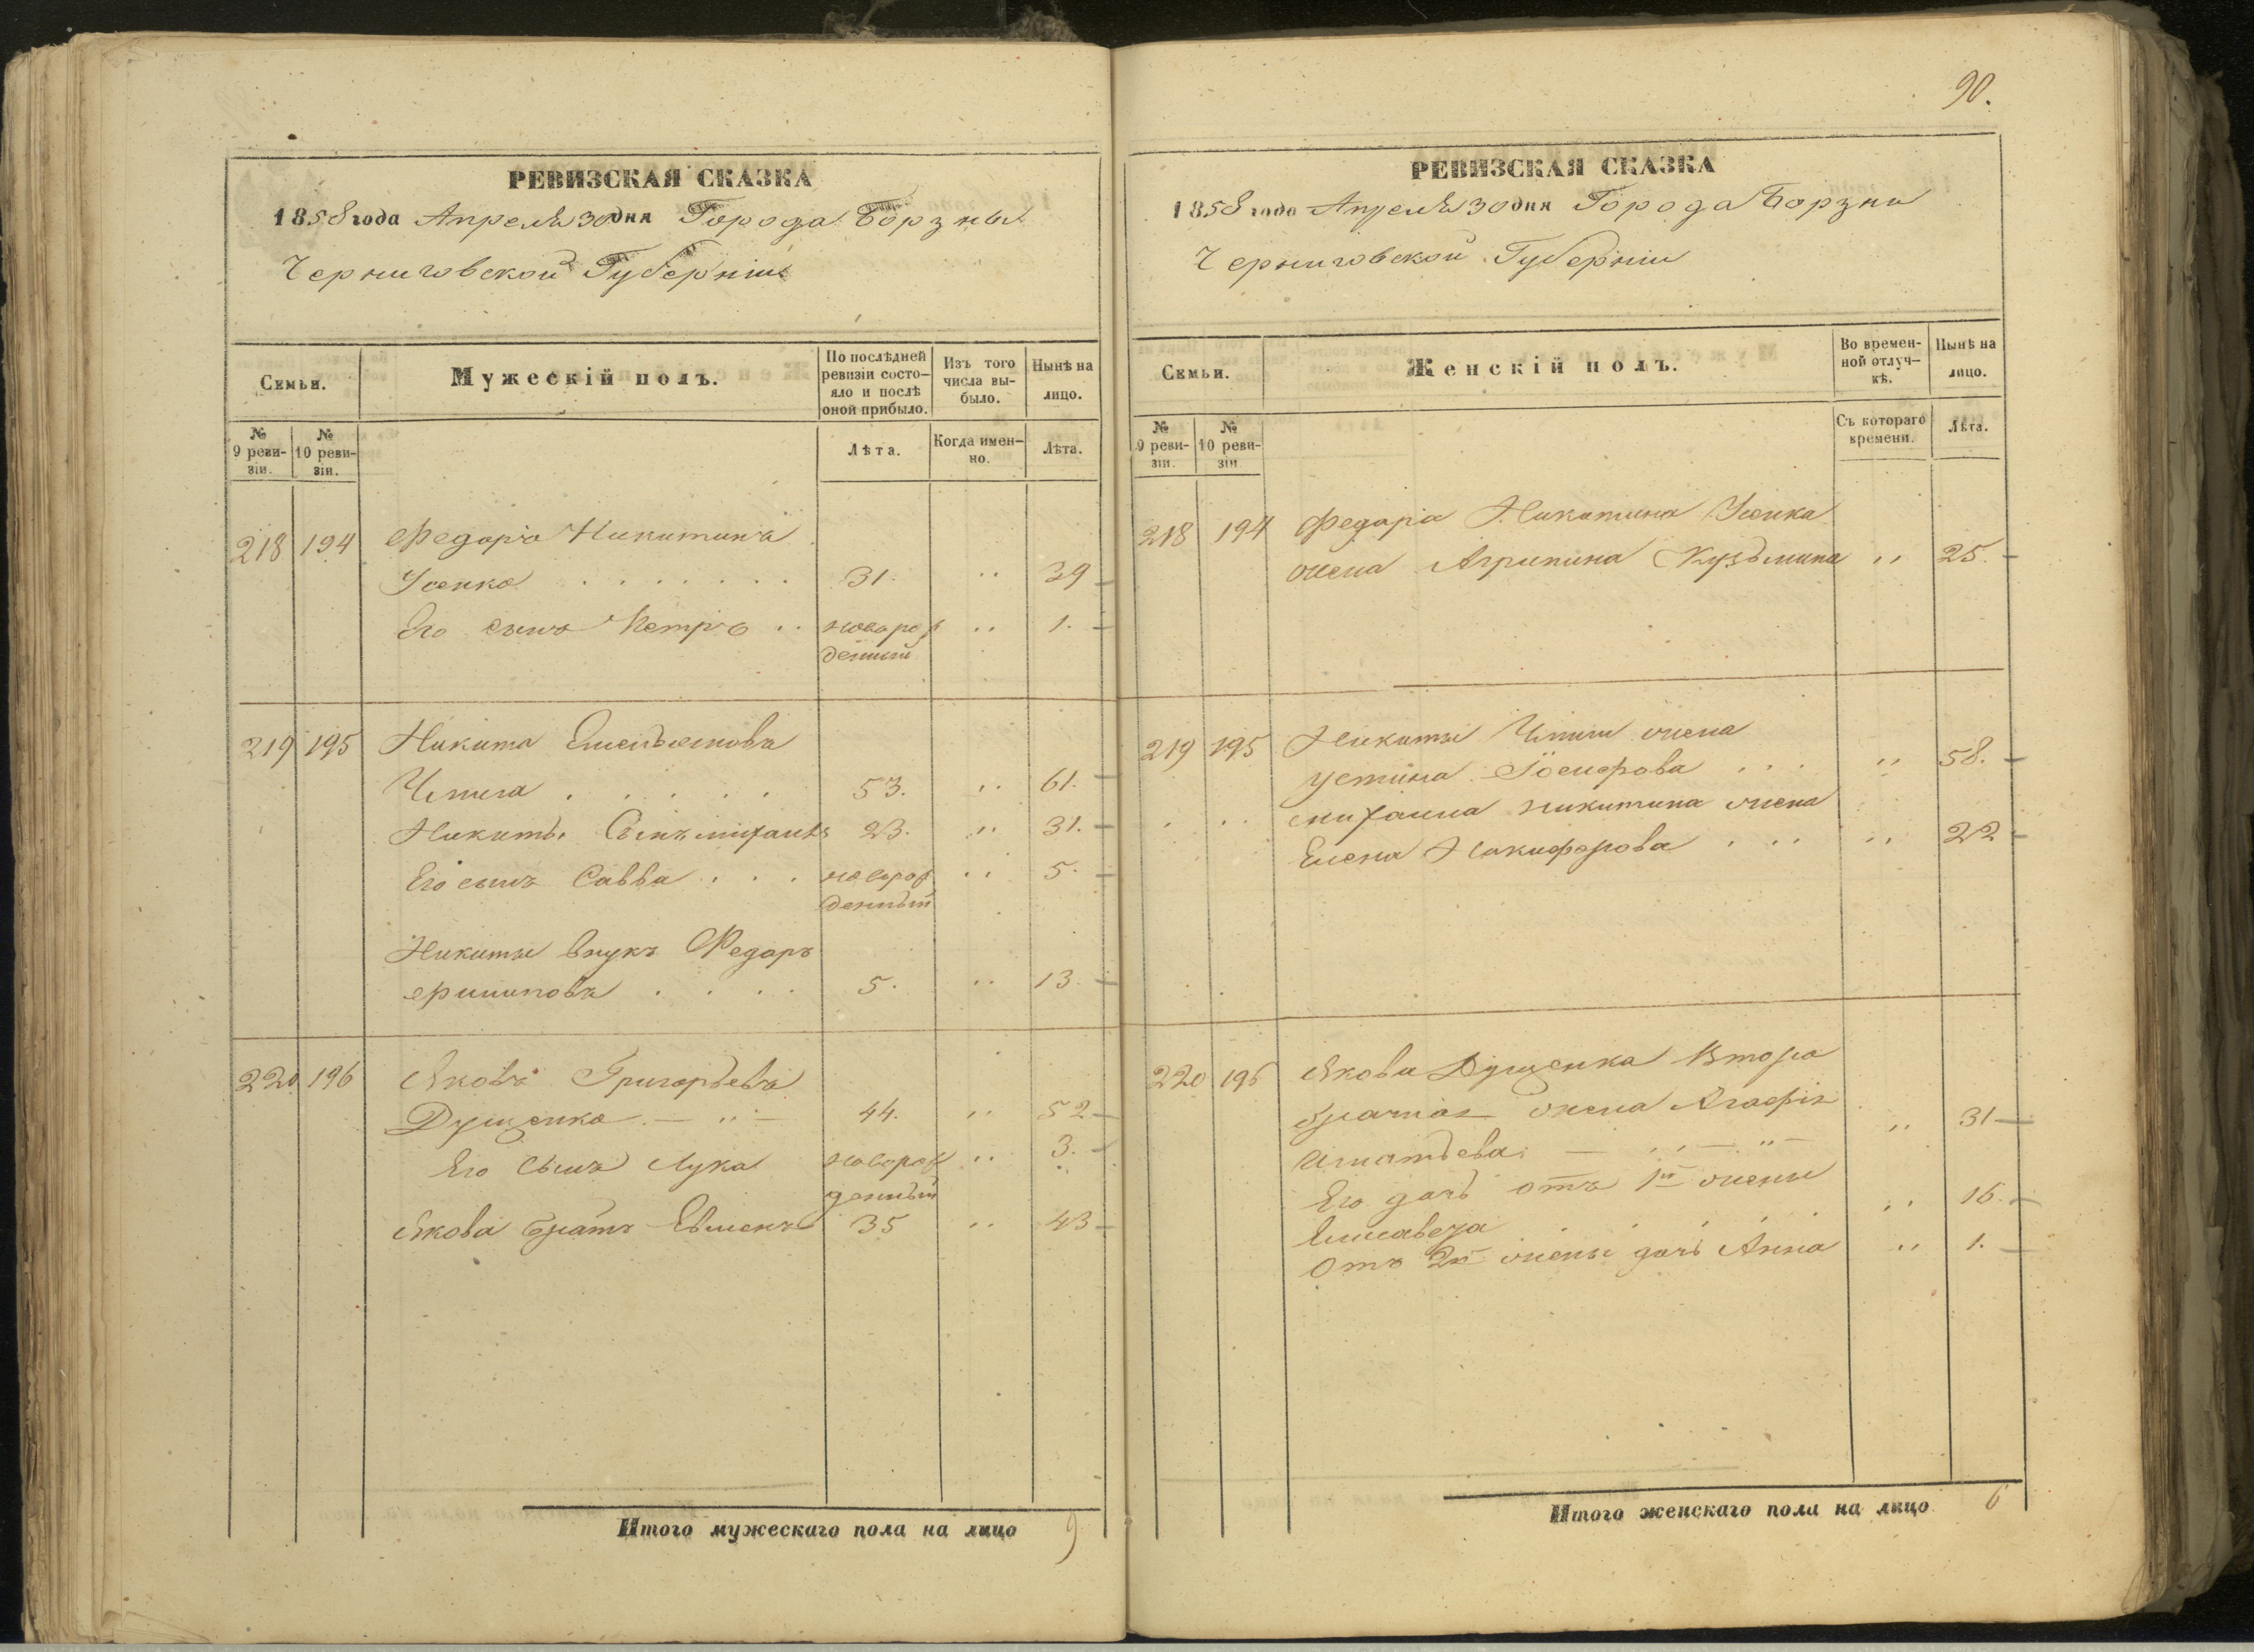 90.
РЕВИЗСКАЯ СКАЗКА
1858 года Апреля 30 дня Города Борзны
Черниговской Губерніи
Семьи.
Мужескій полъ.
По послѣдней ревизіи состо-
яло и послѣ оной прибыло.
Изъ того числа вы-
было.
Нынѣ на лицо.
№ 9 реви-
зіи.
№ 10 реви-
зіи.
Лѣта.
Когда имен-
но.
Лѣта.
218 194 Федоръ Никитинъ
Усенко 31. „ 39
Его сынъ Петръ новорож „ 1.
денный
219 195 Никита Емельяновъ
53. „ 61.
Никиты Сынъ михаилъ 23. „ 31.
Его сынъ Савва новорож „ 5.
денный
Никиты внукъ Федоръ
филиповъ 5. „ 13.
220 196 Яковъ Григорьевъ
Дущенко 44. „ 52
Его Сынъ Лука новорож „ 3.
денный
Якова братъ Евменъ 35 „ 43
Итого мужескаго пола на лицо 9
РЕВИЗСКАЯ СКАЗКА
1858 года Апреля 30 дня Города Борзны
Черниговской Губерніи
Семьи.
Женскій полъ.
Во времен-
ной отлуч-
кѣ.
Нынѣ на лицо.
№ 9 реви-
зіи.
№ 10 реви-
зіи
Съ котораго времени.
Лѣта.
218 194 Федора Никитина Усенка
жена Агрипина Кузьмина „ 25.
219 195 Никиты жена
устина Іосифова „ 58.
михаила никитина жена
Елена Никифорова „ 22
220 196 Якова Дущенка Втора
брачная жена Агафія
Игнатьева „ 31
Его дочь отъ 1й жены
Елисавета „ 16.
Отъ 2й жены дочь Анна „ 1.
Итого женскаго пола на лицо 6